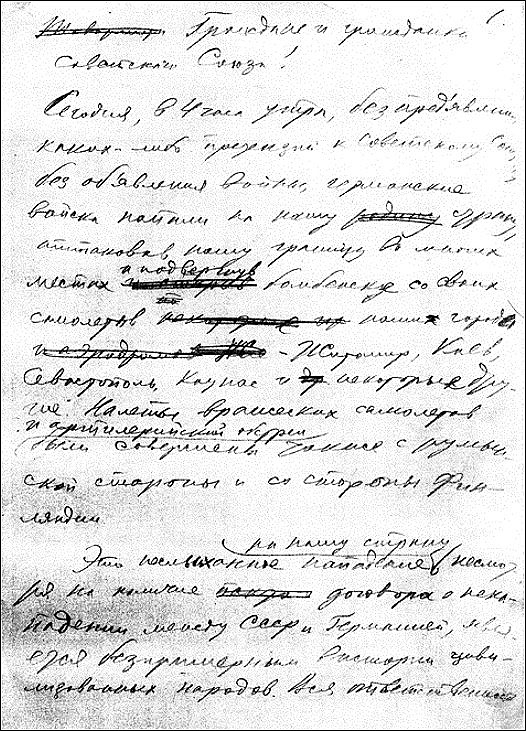 1.
~~Товарищи~~ Граждане и гражданки
Советского Союза!
Сегодня, в 4 часа утра, без предъявления
каких-либо претензий к Советскому Союзу
без объявления войны, германские
войска напали на нашу ~~родину~~ страну,
атаковав нашу границу во многих
местах и подвергнув бомбежке со своих
самолетов наши города
- Житомир, Киев,
Севастополь, Каунас и ~~др~~ некоторые дру-
гие. Налеты вражеских самолетов
и артиллерийский обстрел
были совершены также с румын-
ской стороны и со стороны Фин-
ляндии
на нашу страну
Это неслыханное нападение несмот
ря на наличие договора о нена-
падении между СССР и Германией, явля-
ется беспримерным в истории циви-
лизованных народов. Вся ответственность